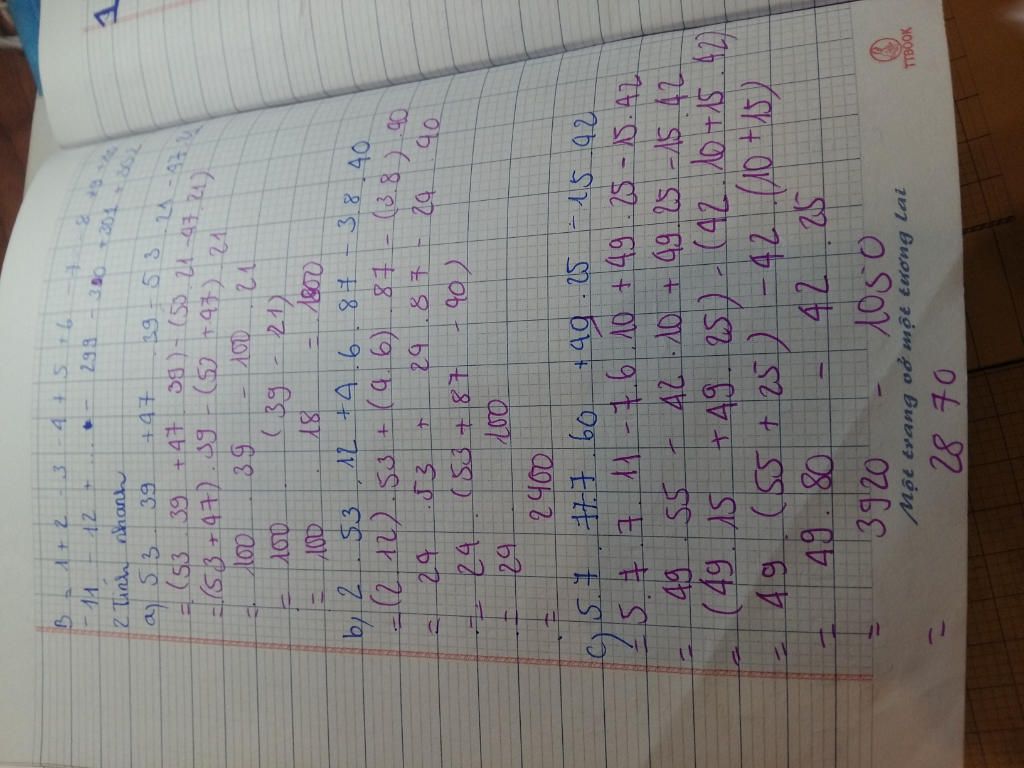 B = 1 + 2 - 3 - 4 + 5 + 6 - 7 - 8 + 9 - 10
- 11 - 12 + ..... - 299 - 300 + 301 + 302
2 Tính nhanh
a) 53 . 39 + 47 . 39 - 53 . 21 - 47 . 21
= (53 . 39 + 47 . 39) - (53 . 21 - 47 . 21)
= (53 + 47) . 39 - (53 + 47) . 21
= 100 . 39 - 100 . 21
= 100 . (39 - 21)
= 100 . 18 = 1800
b) 2 . 53 . 12 + 4 . 6 . 87 - 3 8 . 40
= (2 . 12) . 53 + (4 . 6) . 87 - (3 8) . 40
= 24 . 53 + 24 . 87 - 24 . 40
= 24 . (53 + 87 - 40)
= 24 . 100
= 2400
c) 5 . 7 . 77 - 7 . 60 + 49 . 25 - 15 . 42
= 5 . 7 . 7 . 11 - 7 . 6 . 10 + 49 . 25 - 15 . 42
= 49 . 55 - 42 . 10 + 49 . 25 - 15 . 42
= (49 . 15 + 49 . 25) - (42 . 10 + 15 . 42)
= 49 . (55 + 25) - 42 . (10 + 15)
= 49 . 80 - 42 . 25
= 3920 - 1050
= 28 70
Một trang vở một tương lai
TTBOOK
1